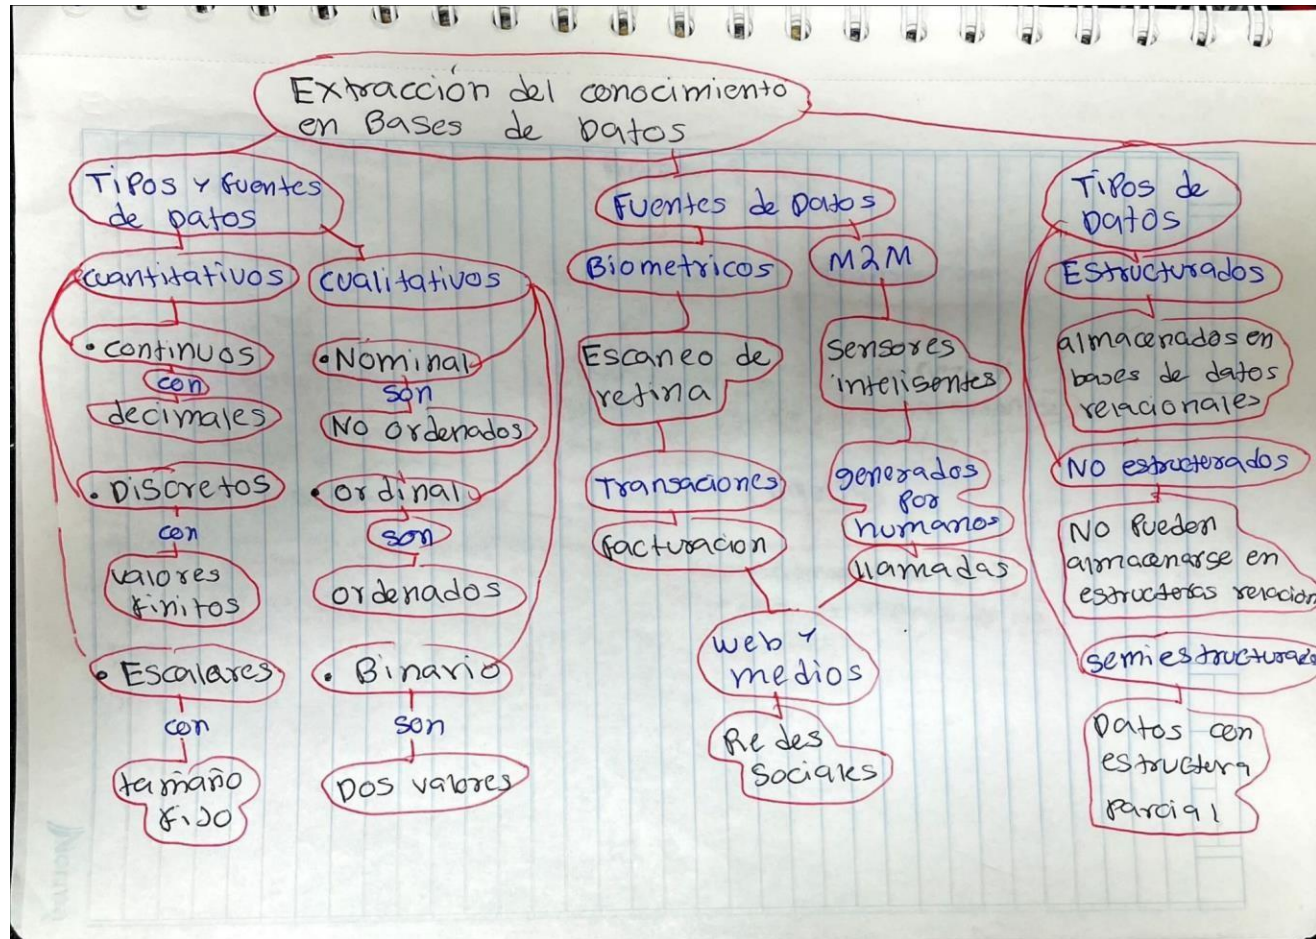 Extracción del conocimiento
en Bases de Datos
Tipos y fuentes
de Datos
cuantitativos
• continuos
con
decimales
• Discretos
con
valores
finitos
• Escalares
con
tamaño
fijo
cualitativos
• Nominal
son
No ordenados
• ordinal
son
ordenados
• Binario
son
Dos valores
Fuentes de Datos
Biometricos
Escaneo de
retina
Transaciones
facturacion
M2M
sensores
inteligentes
generados
por
humanos
llamadas
web y
medios
Redes
Sociales
Tipos de
Datos
Estructurados
almacenados en
bases de datos
relacionales
No estructerados
No pueden
almacenarse en
estructeras relacion
semiestructurado
Datos con
estructera
parcial